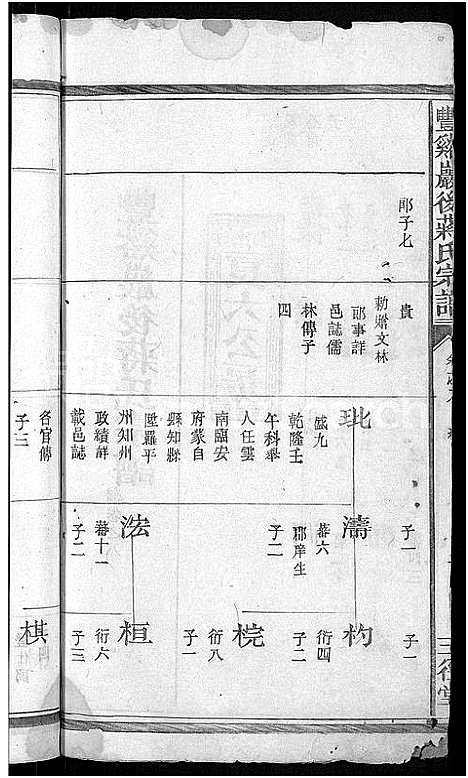 豐谿巖後蔣氏宗譜
三徑堂
郎子七
貴
勅贈文林
郎事詳
邑誌儒
林傳子
四
玭
盛九
乾隆壬
午科舉
人任雲
南臨安
府蒙自
縣知縣
陞羅平
州知州
政績詳
載邑誌
各官傳
子三
子一
濤
蕃六
郡庠生
子二
法
蕃十一
子二
子一
杓
衍四
子二
梡
衍八
子一
桓
衍六
子三
棋